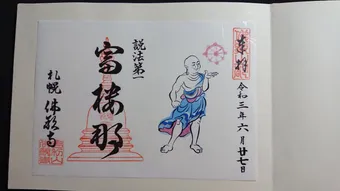 奉拝
令和三年六月廿七日
説法第一
富楼那
札幌 佛願寺